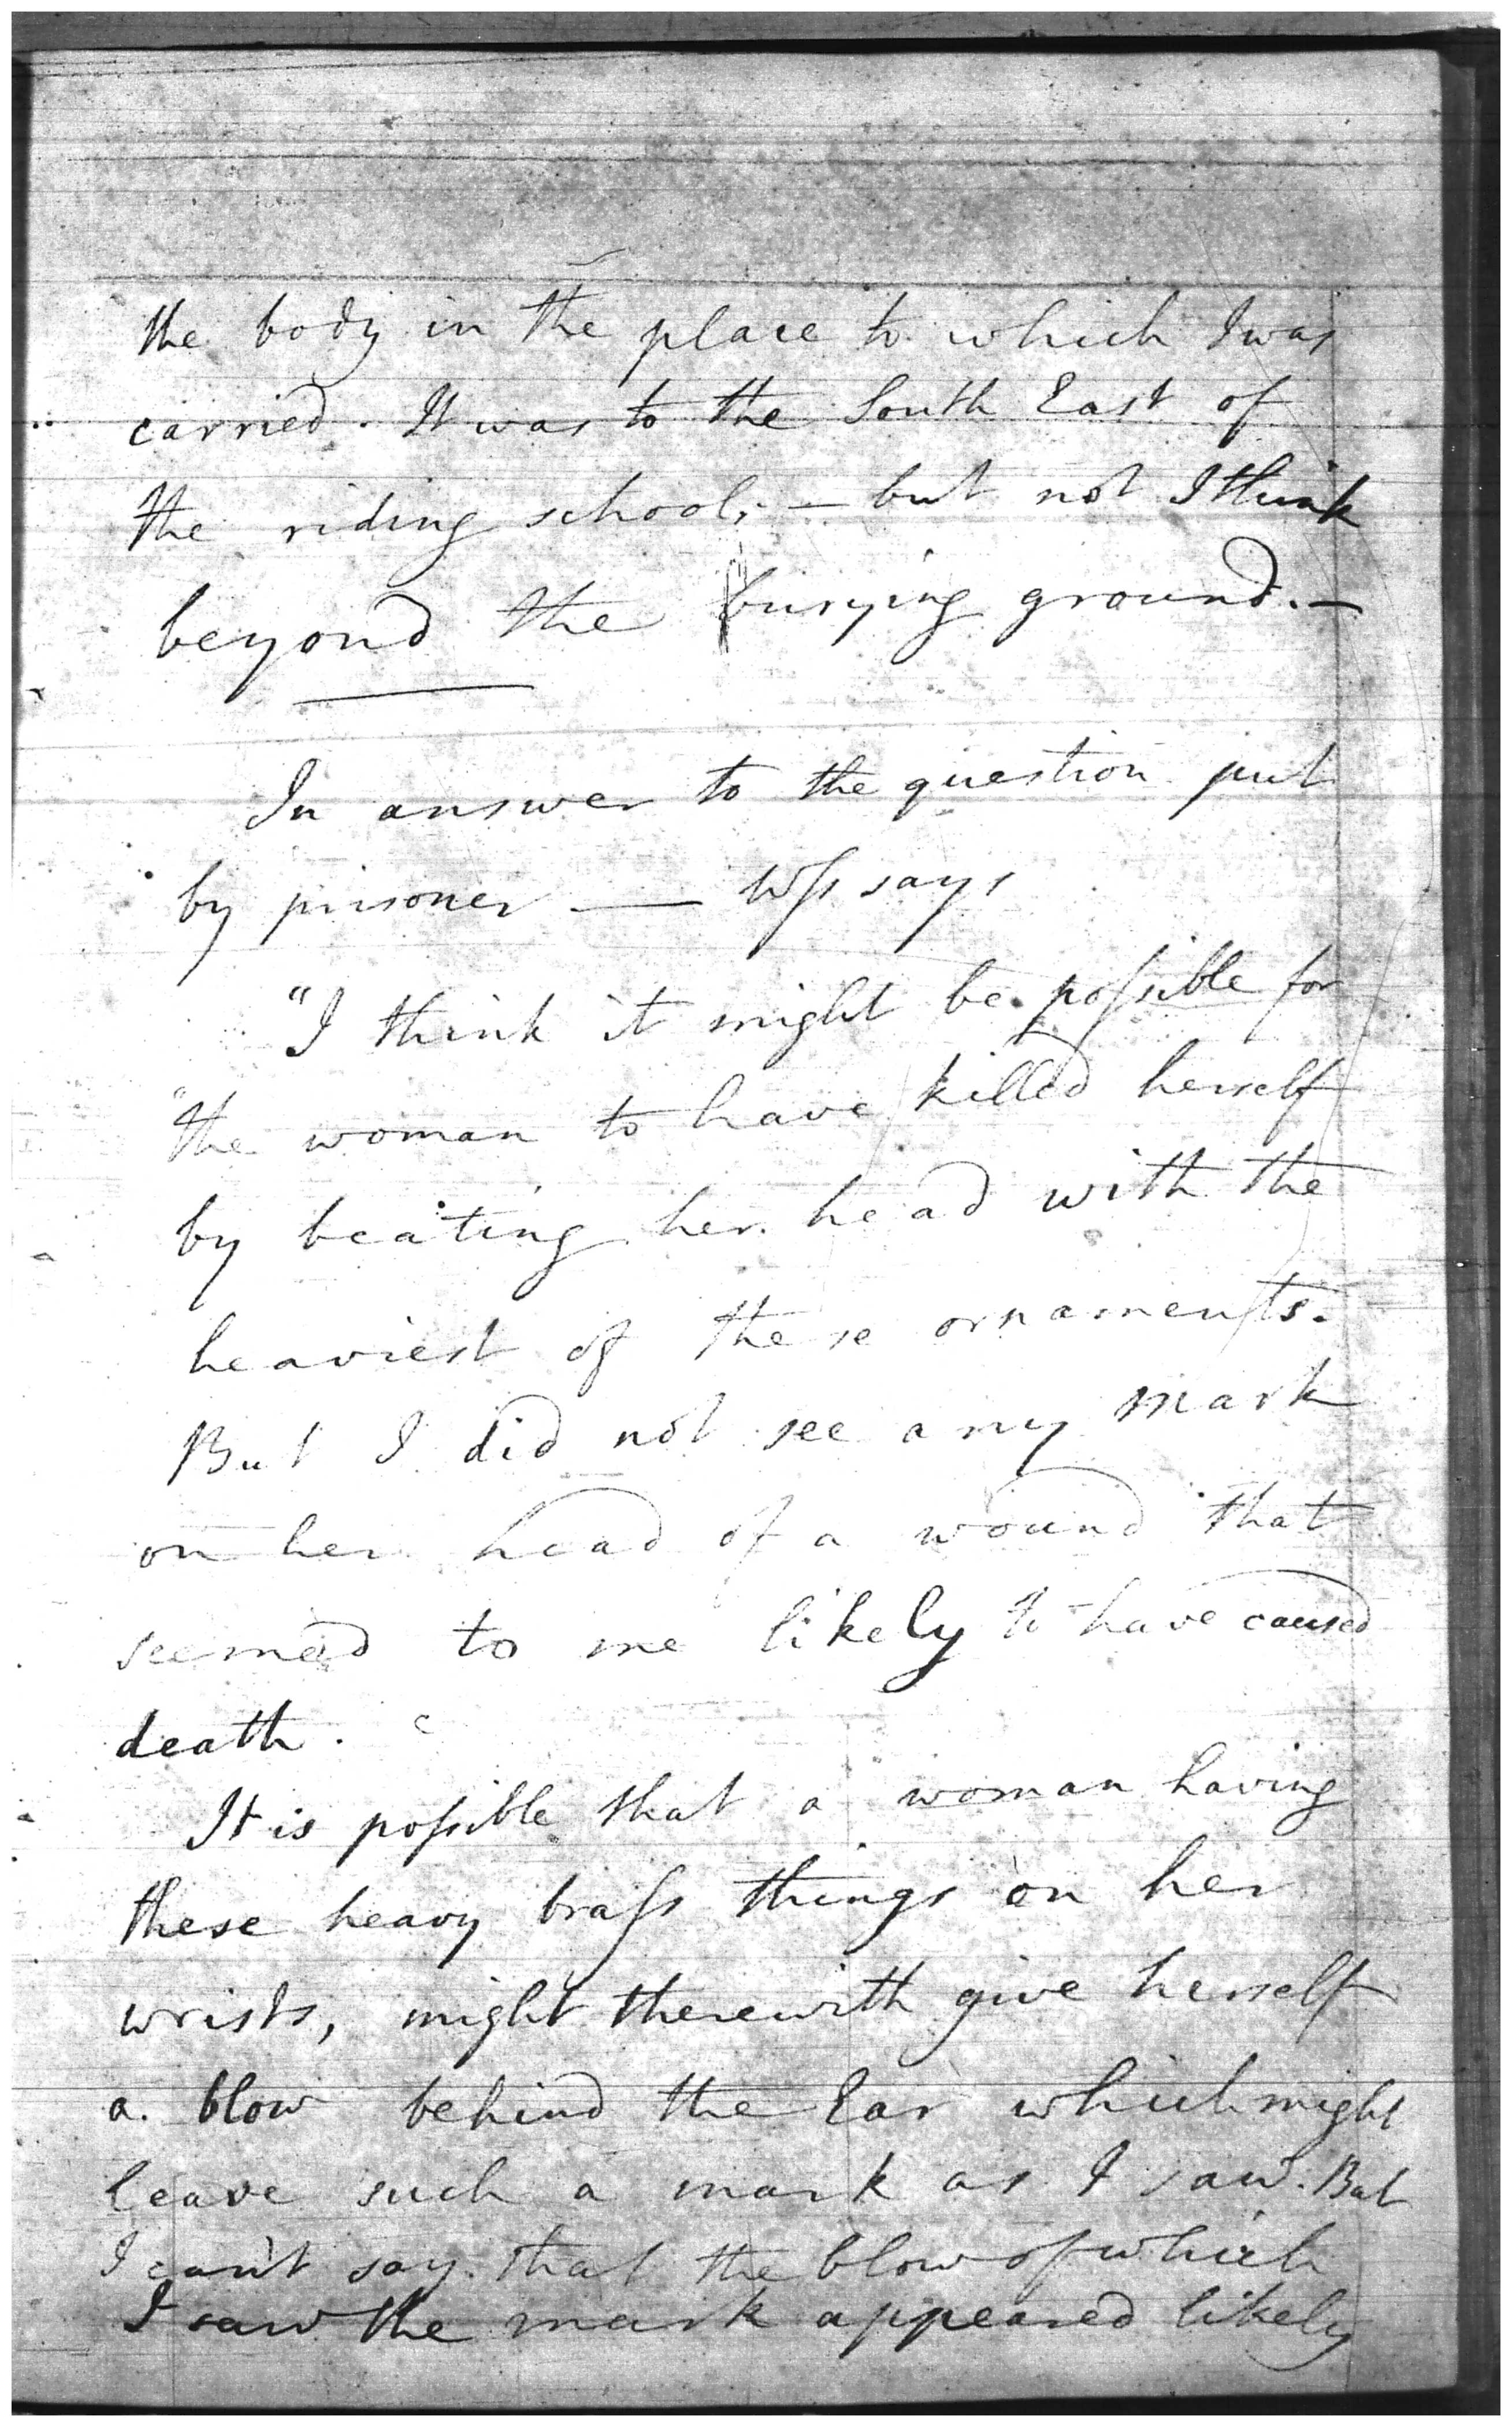 the body in the place to which I was
carried. It was to the South East of
the riding school; — but not I think
beyond the burying ground. —
In answer to the question put
by prisoner — Wſs says
"I think it might be poſsible for
"the woman to have killed herself
by beating her head with the
heaviest of these ornaments.
But I did not see any mark
on her head of a wound that
seemed to me likely to have caused
death.
It is poſsible that a woman having
these heavy braſs things on her
wrists, might therewith give herself
a blow behind the Ear which might
leave such a mark as I saw. But
I can't say that the blow of which
I saw the mark appeared likely